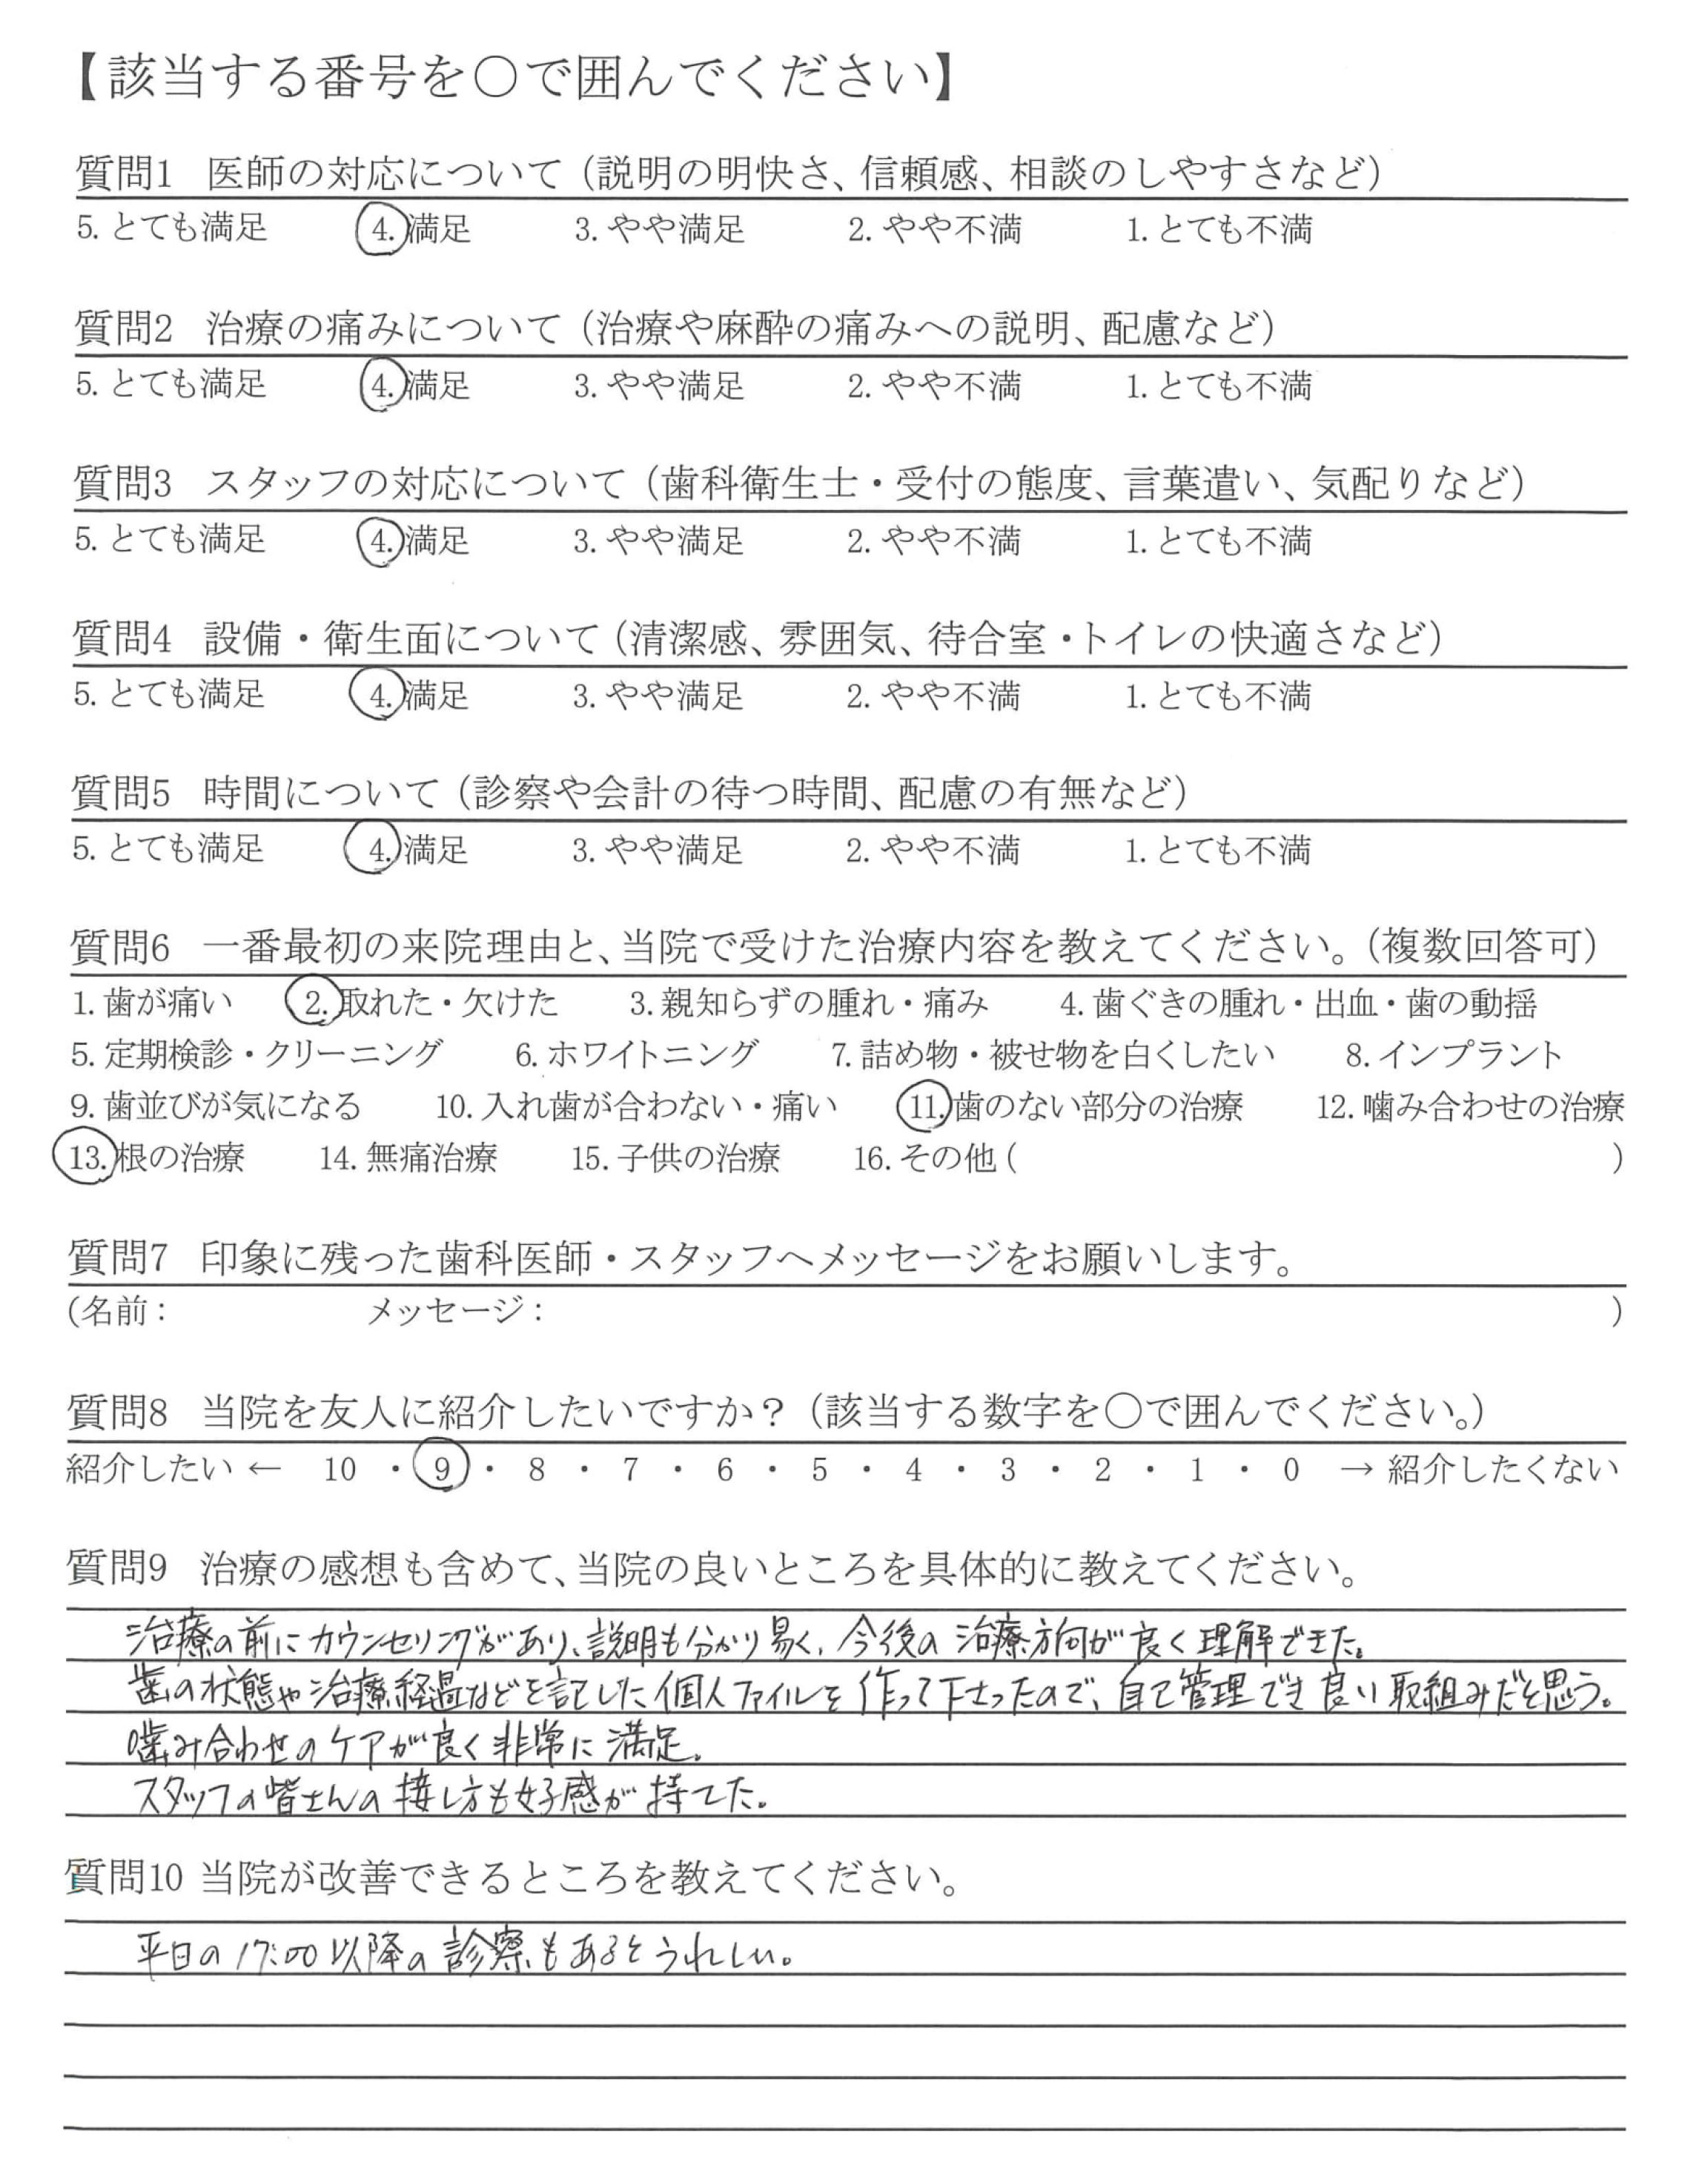 【該当する番号を○で囲んでください】
質問1 医師の対応について（説明の明快さ、信頼感、相談のしやすさなど）
5. とても満足 4. 満足 3. やや満足 2. やや不満 1. とても不満
質問2 治療の痛みについて（治療や麻酔の痛みへの説明、配慮など）
5. とても満足 4. 満足 3. やや満足 2. やや不満 1. とても不満
質問3 スタッフの対応について（歯科衛生士・受付の態度、言葉遣い、気配りなど）
5. とても満足 4. 満足 3. やや満足 2. やや不満 1. とても不満
質問4 設備・衛生面について（清潔感、雰囲気、待合室・トイレの快適さなど）
5. とても満足 4. 満足 3. やや満足 2. やや不満 1. とても不満
質問5 時間について（診察や会計の待つ時間、配慮の有無など）
5. とても満足 4. 満足 3. やや満足 2. やや不満 1. とても不満
質問6 一番最初の来院理由と、当院で受けた治療内容を教えてください。（複数回答可）
1. 歯が痛い 2. 取れた・欠けた 3. 親知らずの腫れ・痛み 4. 歯ぐきの腫れ・出血・歯の動揺
5. 定期検診・クリーニング 6. ホワイトニング 7. 詰め物・被せ物を白くしたい 8. インプラント
9. 歯並びが気になる 10. 入れ歯が合わない・痛い 11. 歯のない部分の治療 12. 噛み合わせの治療
13. 根の治療 14. 無痛治療 15. 子供の治療 16. その他（ ）
質問7 印象に残った歯科医師・スタッフへメッセージをお願いします。
（名前： メッセージ： ）
質問8 当院を友人に紹介したいですか？（該当する数字を○で囲んでください。）
紹介したい ← 10 ・ 9 ・ 8 ・ 7 ・ 6 ・ 5 ・ 4 ・ 3 ・ 2 ・ 1 ・ 0 → 紹介したくない
質問9 治療の感想も含めて、当院の良いところを具体的に教えてください。
治療の前にカウンセリングがあり、説明も分かり易く、今後の治療方向が良く理解できた。
歯の状態や治療経過などを記した個人ファイルを作って下さったので、自己管理でき良い取組みだと思う。
噛み合わせのケアが良く非常に満足。
スタッフの皆さんの接し方も好感が持てた。
質問10 当院が改善できるところを教えてください。
平日の17:00以降の診察もあるとうれしい。